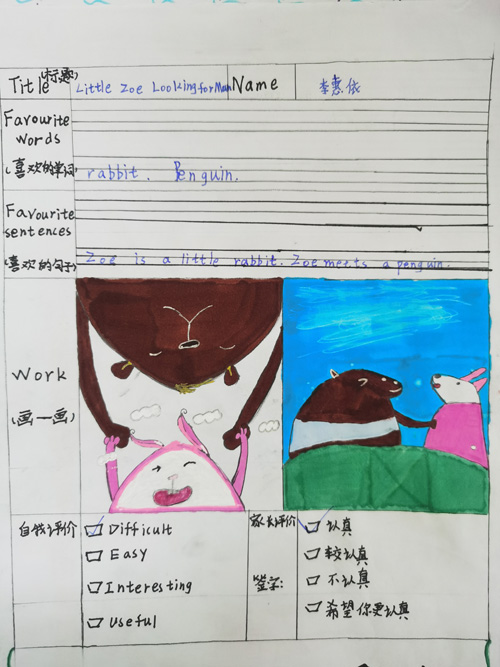 Title (标题) Little Zoe Looking for Mum Name 李惠依
Favourite
words
(喜欢的单词) rabbit. Penguin.
Favourite
sentences
(喜欢的句子) Zoe is a little rabbit. Zoe meets a penguin.
Work
(画一画)
自我评价 Difficult 家长评价 认真
Easy 较认真
Interesting 签字: 不认真
Useful 希望你更认真